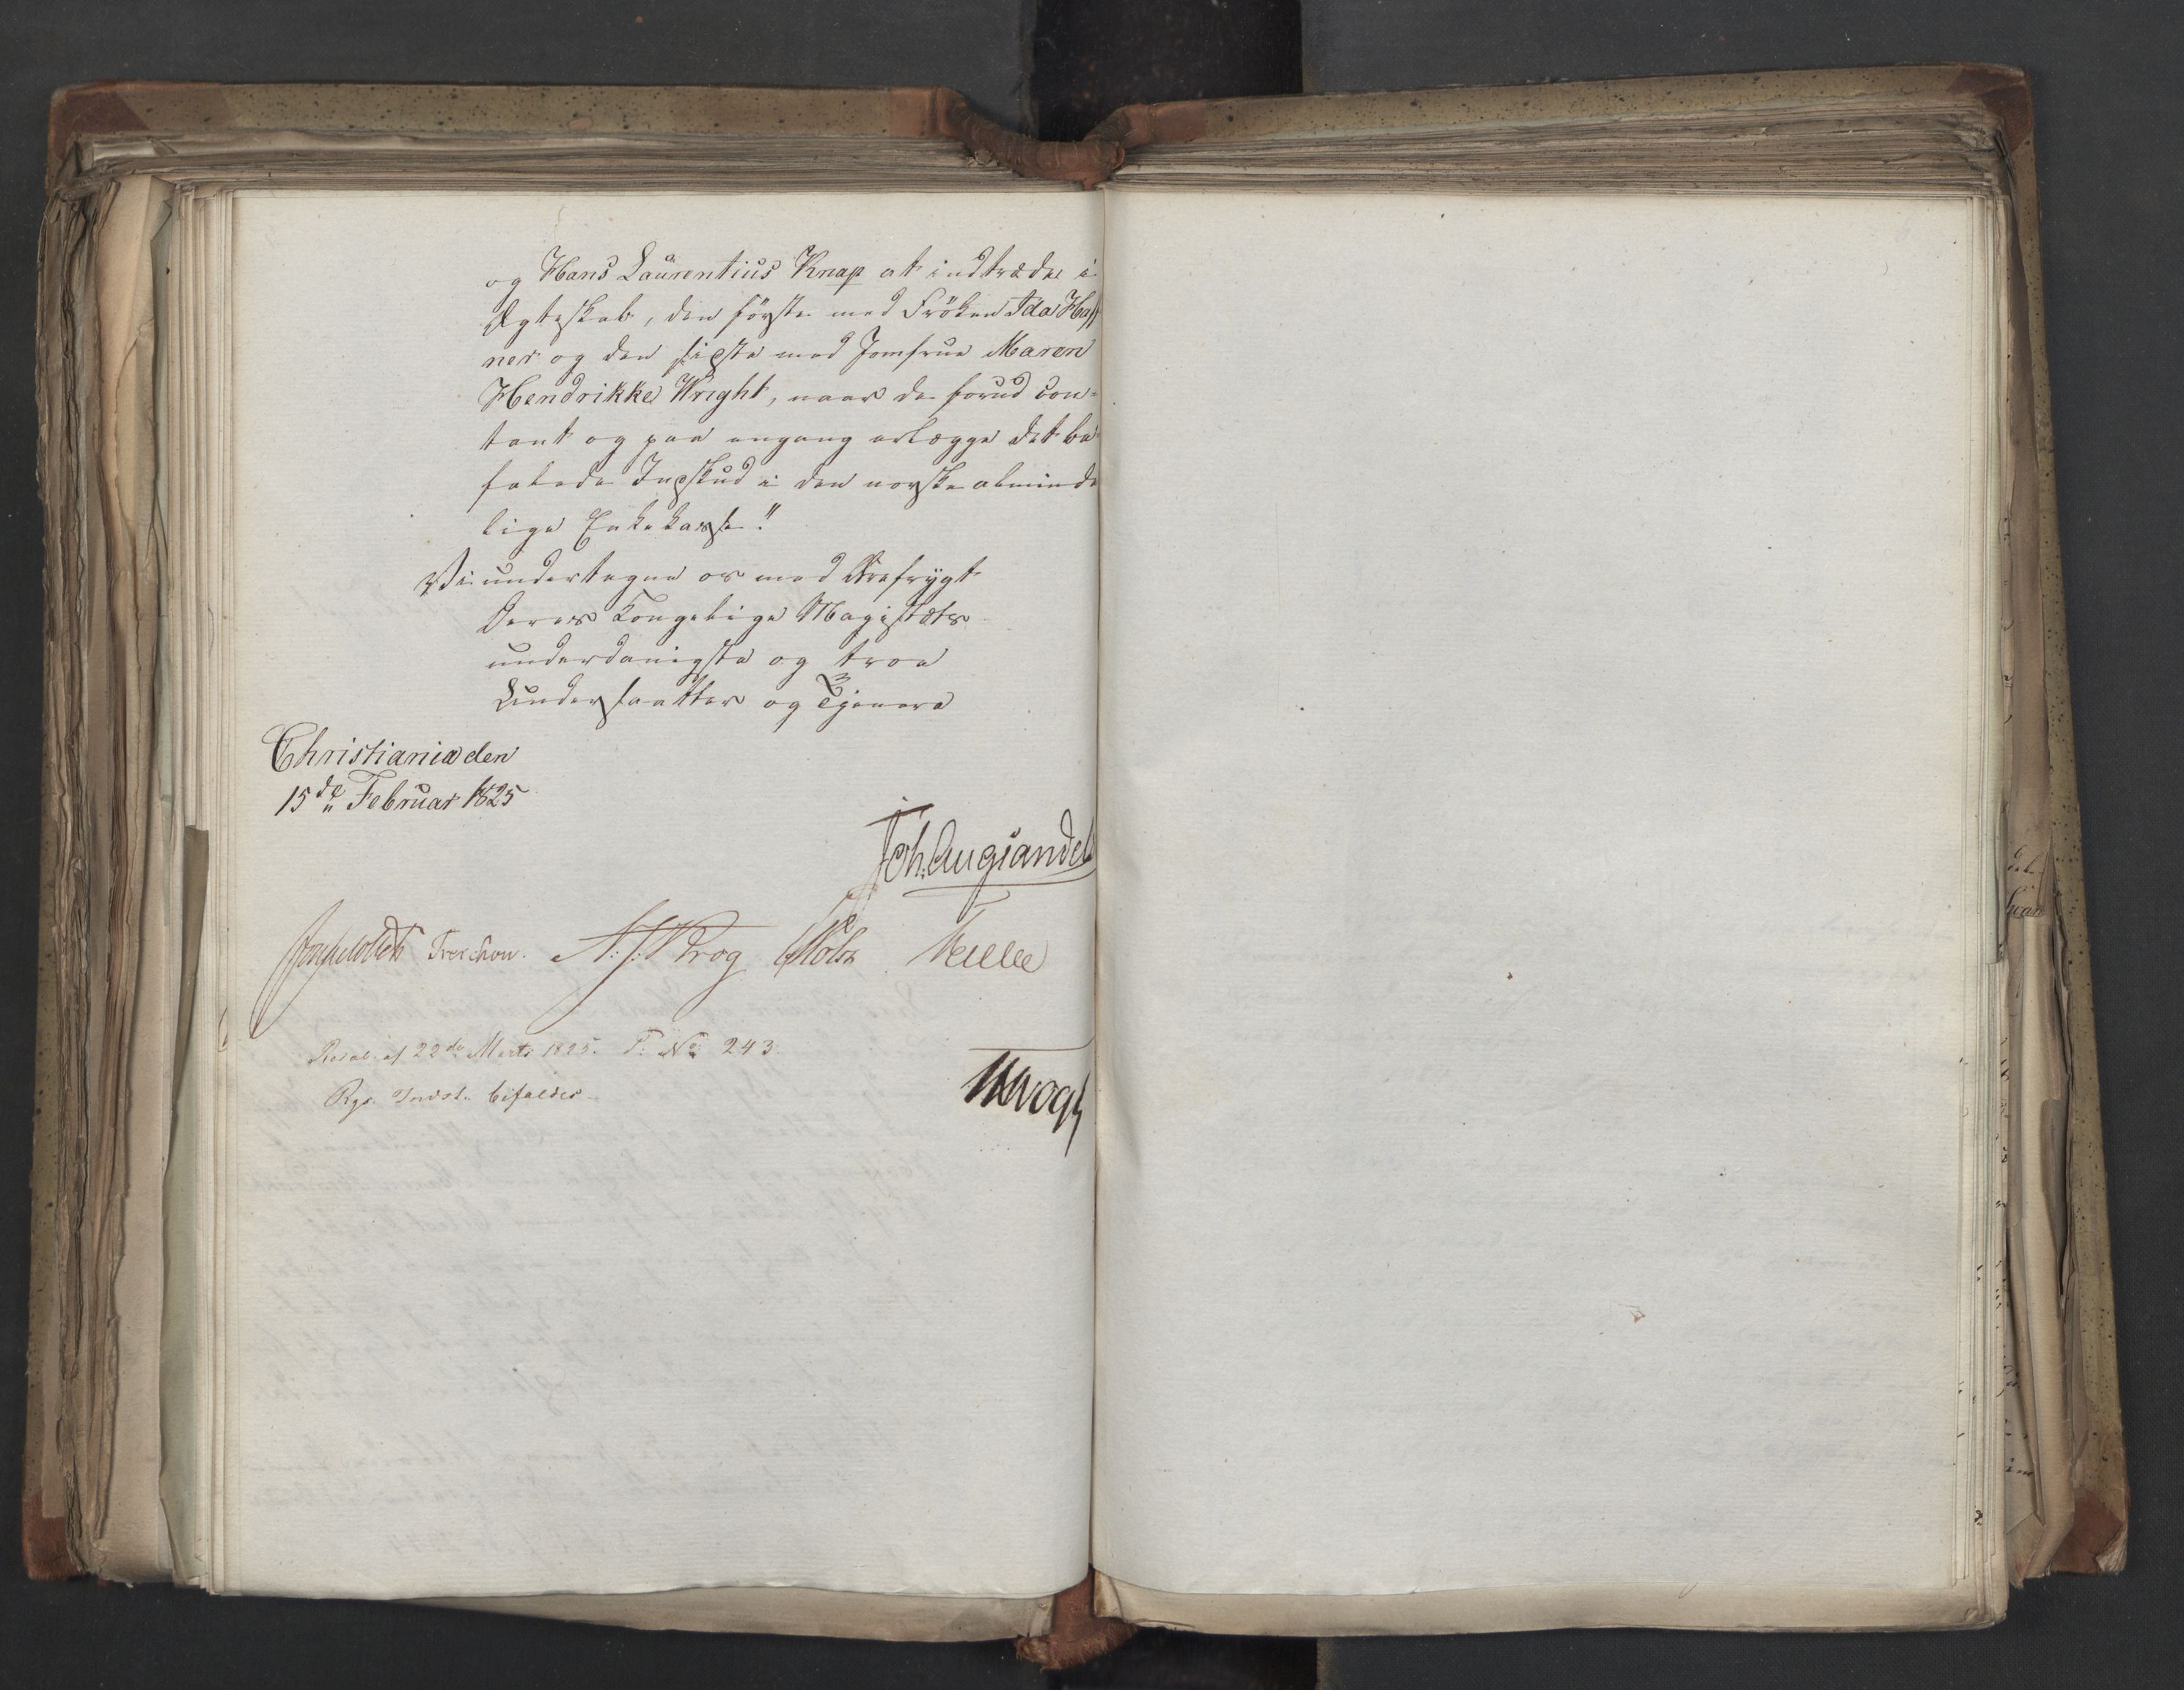 og Hans Laurentius Knap at indtræde i
Ægteskab, den förste med Fröken Ida Haff
ner og den sidste med Jomfrue Maren
Hendrikke Wright, naar de forud con-
tant og paa engang erlægge det be-
falede Indskud i den norske alminde
lige Enkekasse."
Vi undertegne os med Ærefrygt
Deres Kongelige Majestæts
underdanigste og troe
Undersaatter og Tjenere
Christiania den
15de Februar 1825
Joh. Aug. Sandels
Jonas Collett Treschow. A: J: Krog Holst
Resol. af 22de Marts 1825. T. No 243.
Rgs. Indst. bifaldes.